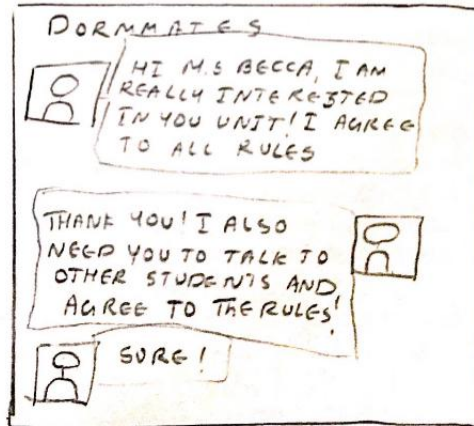 DORMMATES
HI M.S BECCA, I AM
REALLY INTERESTED
IN YOU UNIT! I AGREE
TO ALL RULES
THANK YOU! I ALSO
NEED YOU TO TALK TO
OTHER STUDENTS AND
AGREE TO THE RULES!
SURE!